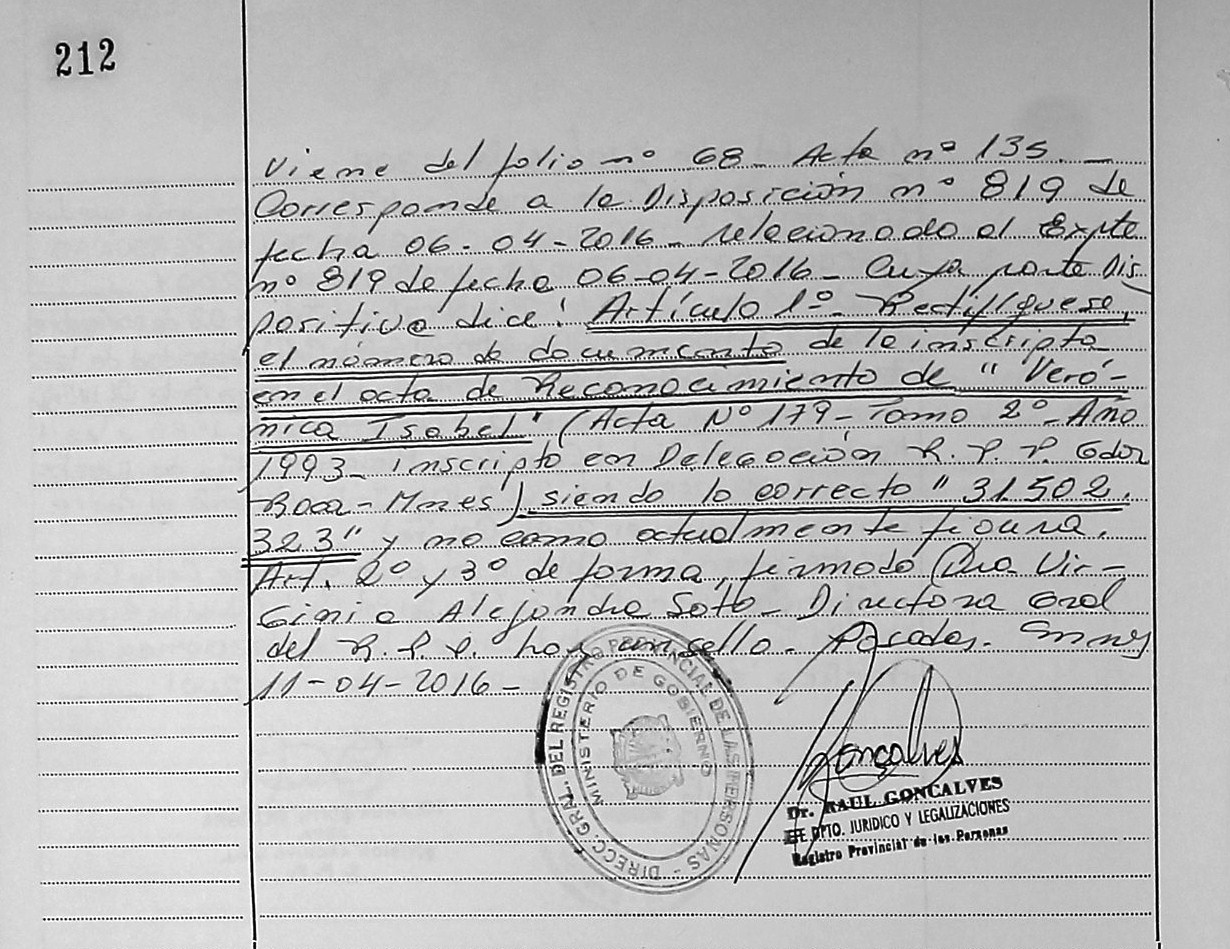 212
Viene del folio nº 68_ Acta nº 135._
Corresponde a la Disposición nº 819 de
fecha 06-04-2016_ relacionado al Expte
nº 819 de fecha 06-04-2016_ Cuya parte Dis
positiva dice: Artículo 1º_ Rectifíquese,
el número de documento de la inscripta
en el acta de Reconocimiento de "Veró-
nica Isabel" (Acta Nº 179_ Tomo 2º_ Año
1993_ inscripto en Delegación R.P.P. Gdor
Roca-Mnes) siendo lo correcto "31.502.
323" y no como actualmente figura.
Art. 2º y 3º de forma, firmado Dra Vir-
ginia Alejandra Soto_ Directora Gral
del R.P.P. hay un sello. Posadas. Mnes
11-04-2016_
DIRECC. GRAL. DEL REGISTRO PROVINCIAL DE LAS PERSONAS -
MINISTERIO DE GOBIERNO
Goncalves
Dr. RAUL GONCALVES
JEFE DPTO. JURIDICO Y LEGALIZACIONES
Registro Provincial de las Personas